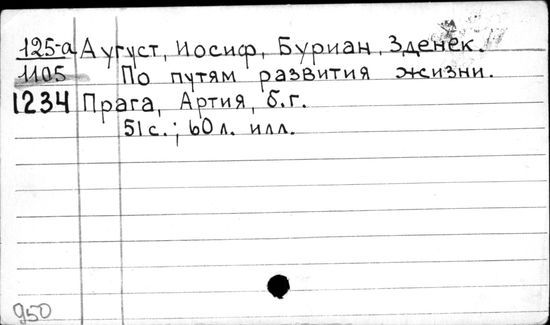 125-а Аугуст, Иосиф, Буриан, Зденек.
1105 По путям развития жизни.
1234 Прага, Артия, б.г.
51 с.; 60 л. илл.
950